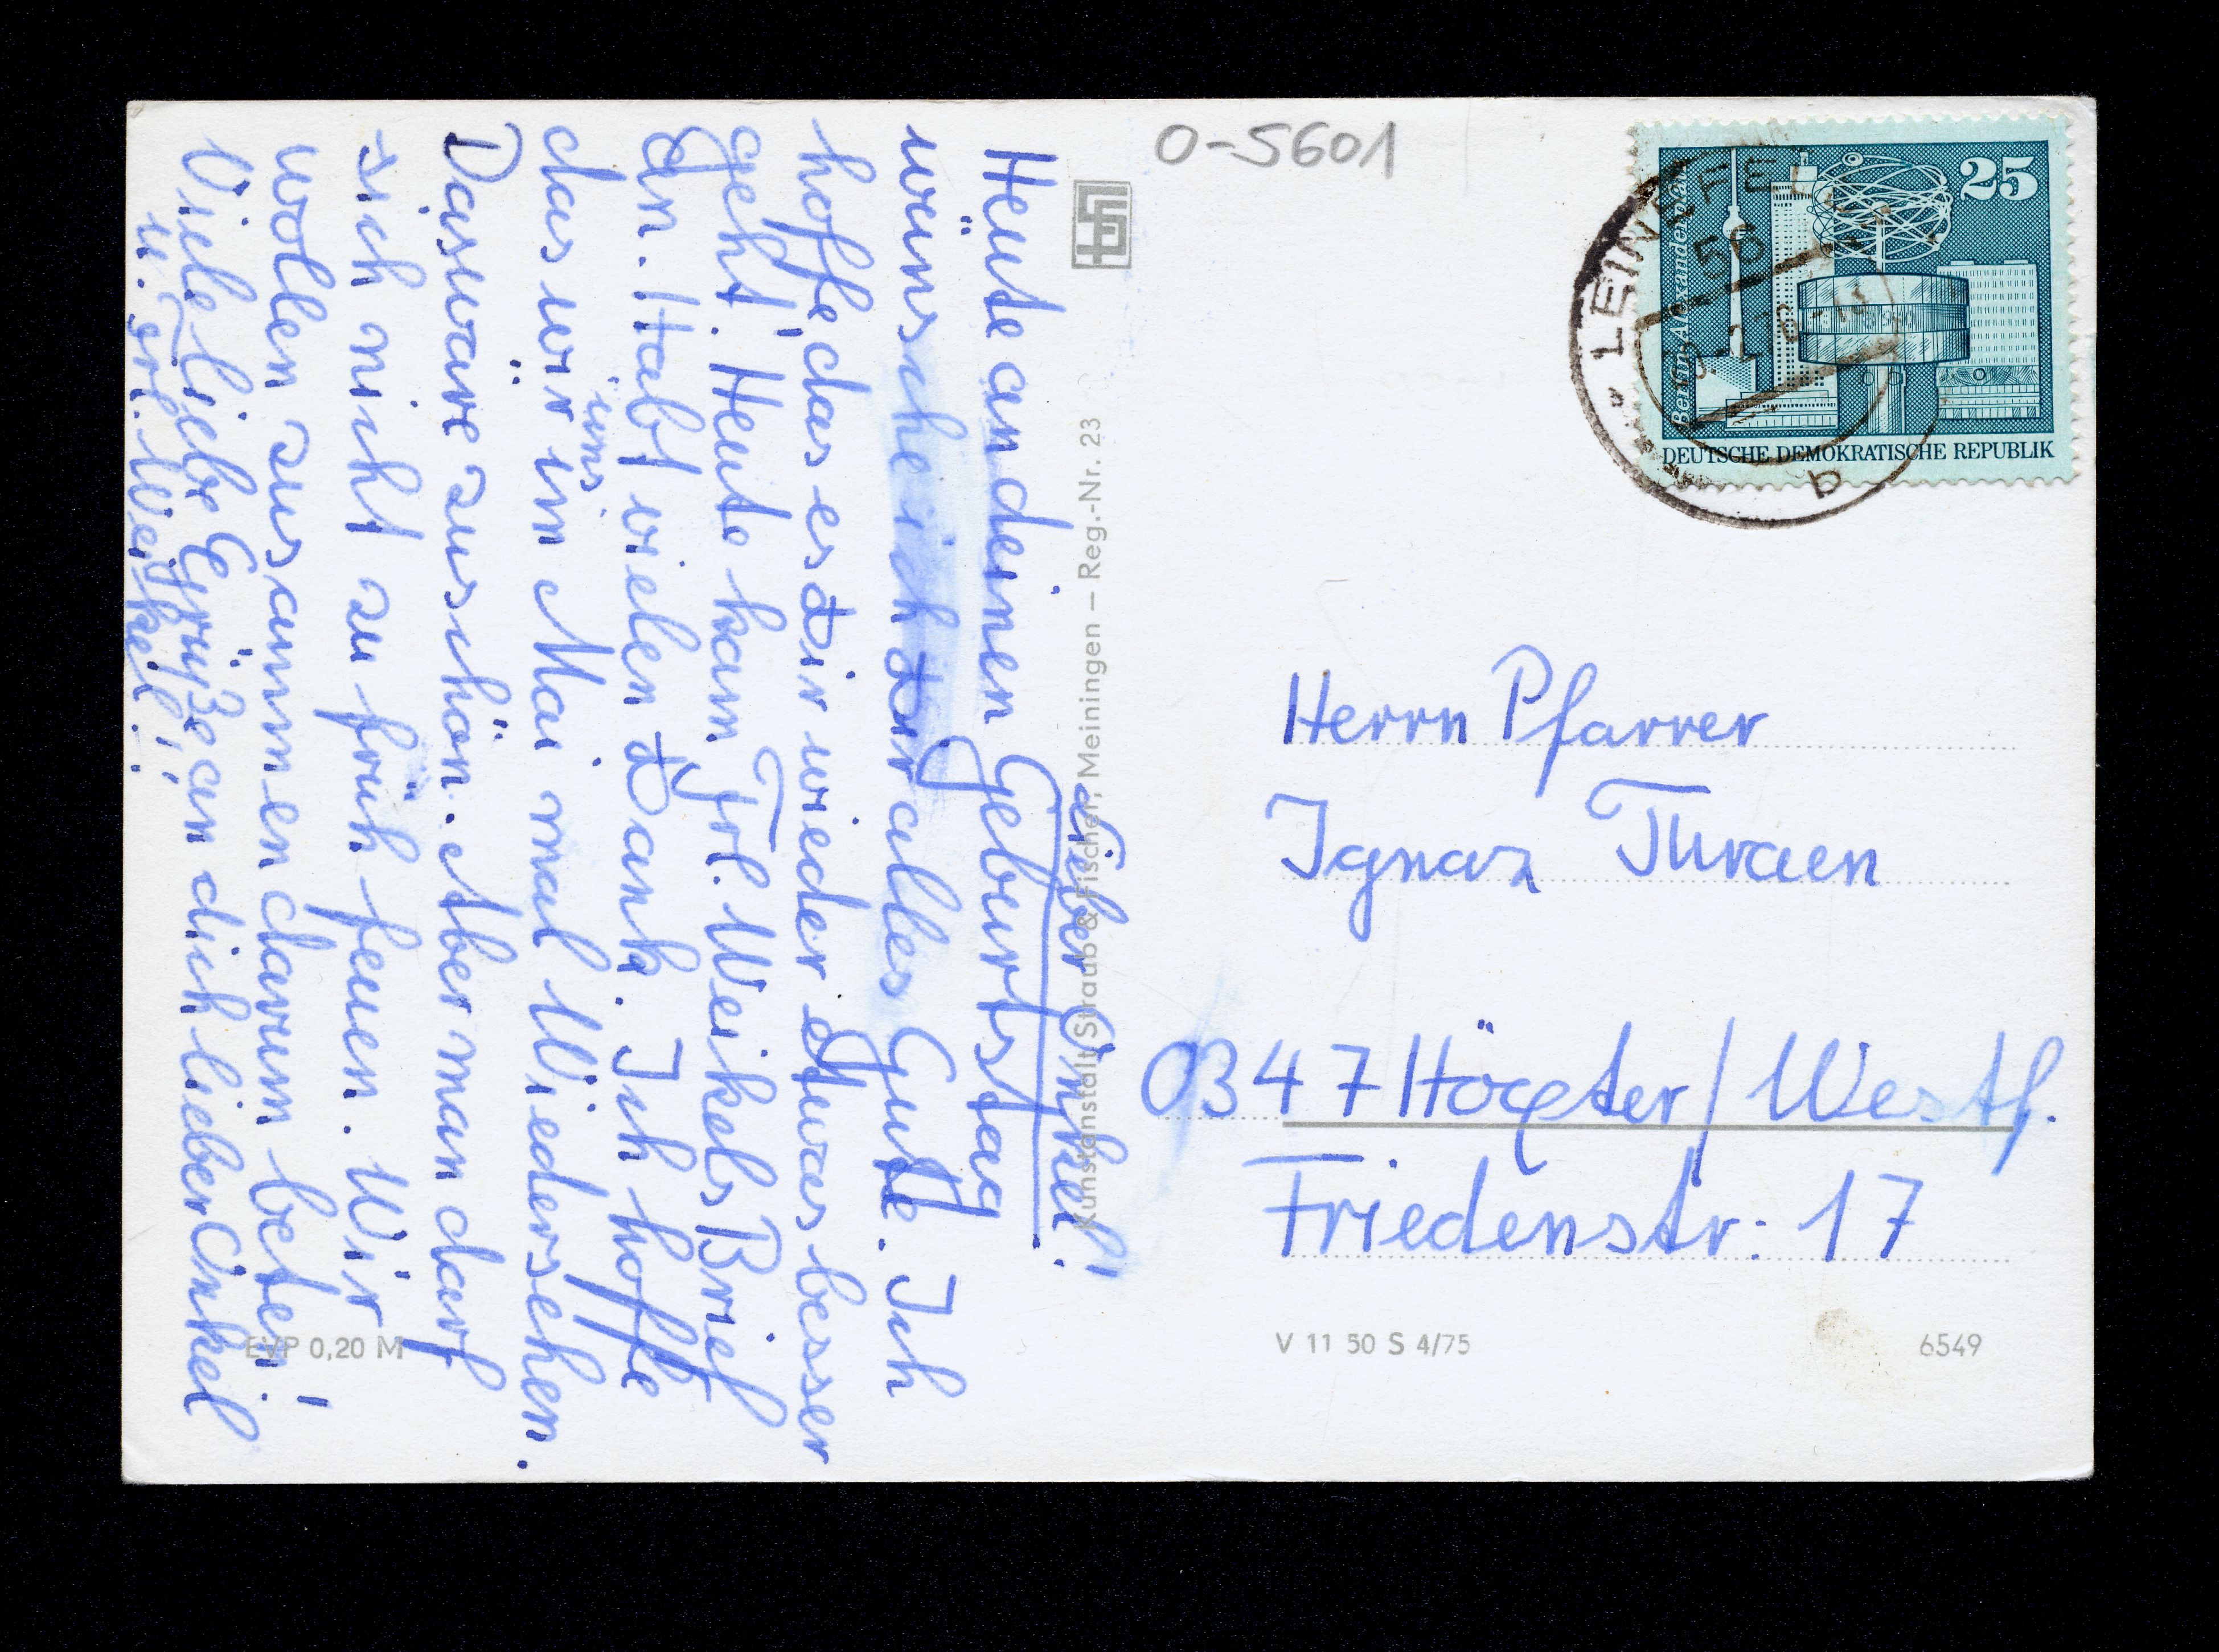 lieber Onkel!
Heute an deinen Geburtstag
wünsche ich dir alles Gute. Ich
hoffe das es dir wieder etwas besser
geht. Heute kam Frl. Weikels Brief
an. Habt vielen Dank. Ich hoffe
das wir uns im Mai mal Wiedersehen.
Das wäre zu schön. Aber man darf
sich nicht zu früh freuen. Wir
wollen zusammen darum beten!
Viele liebe Grüße an dich lieber Onkel
u. Frl. Weikel!
Kunstanstalt Straub & Fischer, Meiningen – Reg.-Nr. 23
EVP 0,20 M
O-5601
25
Berlin, Alexanderplatz
DEUTSCHE DEMOKRATISCHE REPUBLIK
LEINEFEL
56
b
Herrn Pfarrer
Ignaz Thraen
D347 Höxter/Westf.
Friedenstr: 17
V 11 50 S 4/75
6549